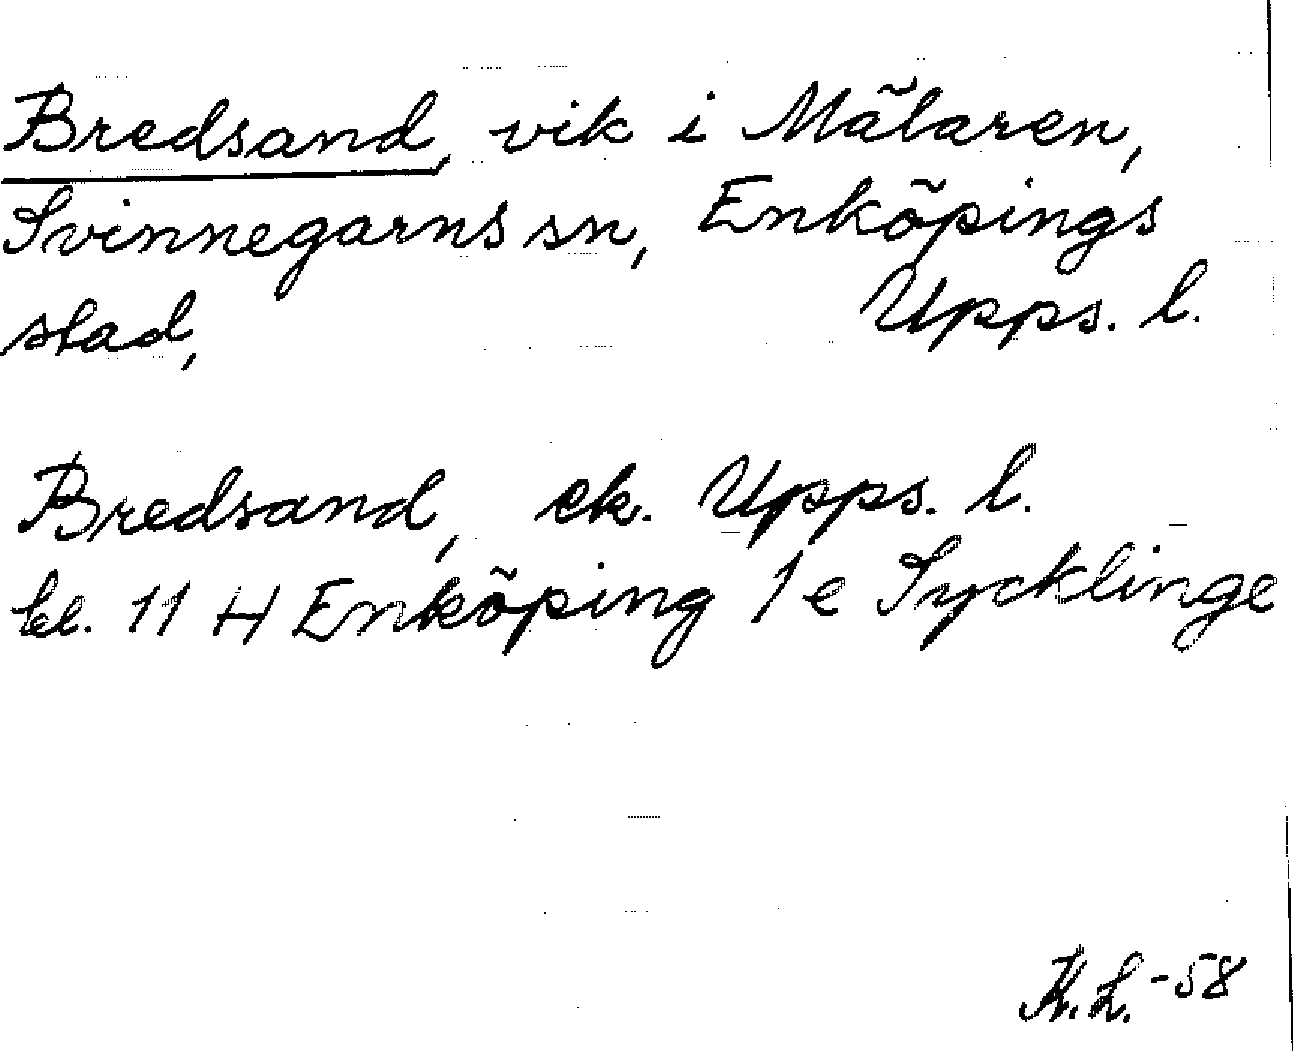 Bredsand, vik i Mälaren,
Svinnegarns sn, Enköpings
stad, Upps. l.
Bredsand, ek. Upps. l.
bl. 11 H Enköping 1 e Sycklinge
K.L. -58